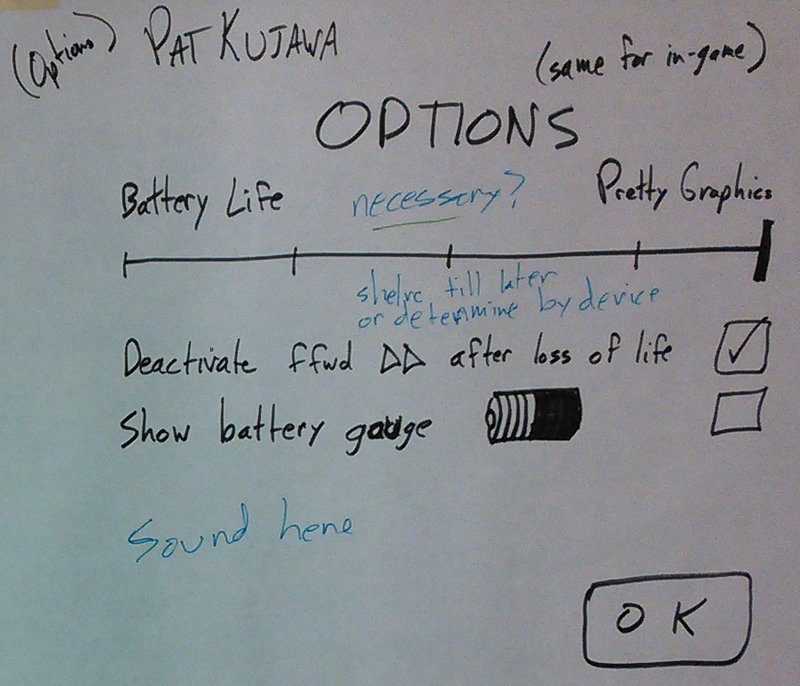 (Options) PAT KUJAWA
(same for in-game)
OPTIONS
Battery Life necessary? Pretty Graphics
shelve till later
or determine by device
Deactivate ffwd ▷▷ after loss of life
Show battery gauge
Sound here
OK